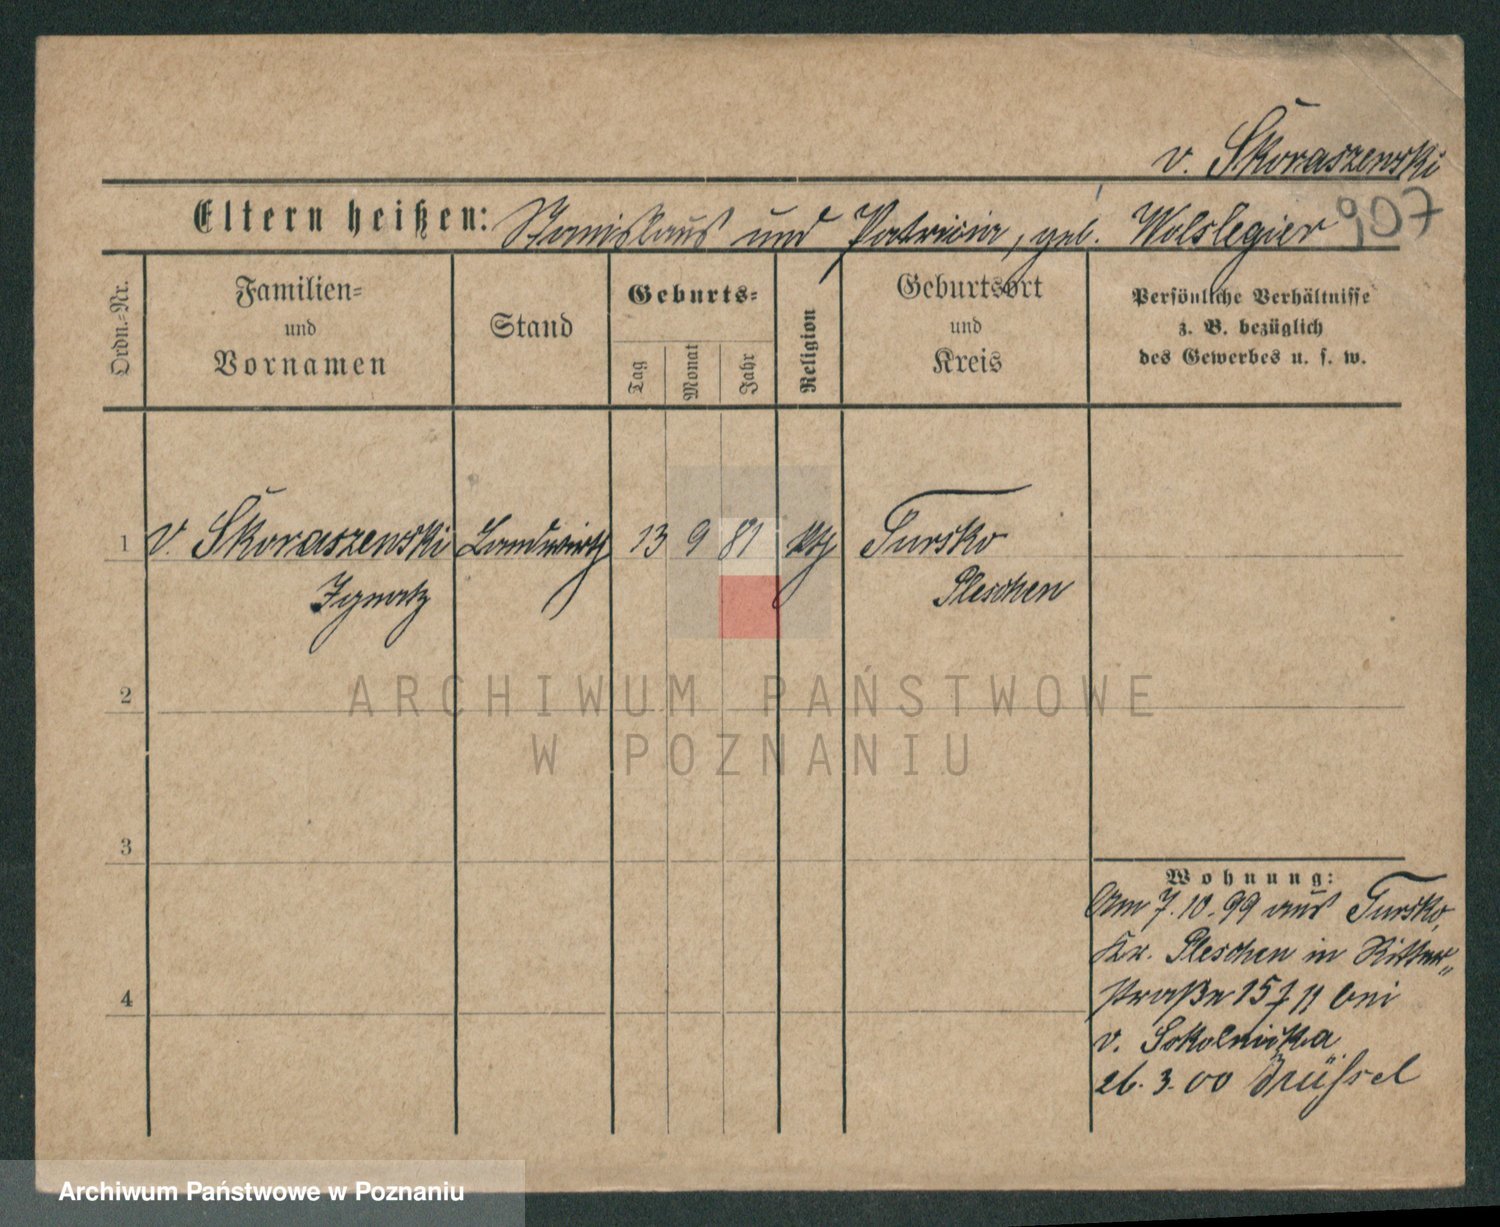 v. Skoraszewski
Eltern heißen: Stanislaus und Patricia, geb. Wolslegier 907
Ordn.-Nr.
Familien-
und
Vornamen
Stand
Geburts-
Tag
Monat
Jahr
Religion
Geburtsort
und
Kreis
Persönliche Verhältnisse
z. B. bezüglich
des Gewerbes u. s. w.
1 v. Skoraszewski Landwirth 13 9 81 kth Tursko
Ignatz Pleschen
2
3
4
Wohnung:
Am 7.10.99 aus Tursko,
Kr. Pleschen in Ritter„
straße 15 II bei
v. Sokolnicka
26. 3. 00 Brüssel
ARCHIWUM PAŃSTWOWE
W POZNANIU
Archiwum Państwowe w Poznaniu